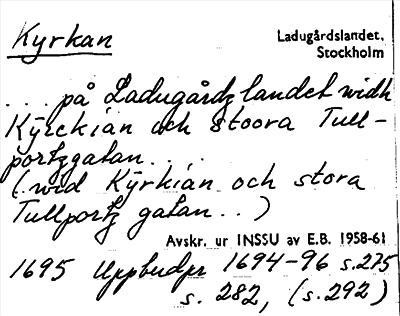 Kyrkan
Ladugårdslandet.
Stockholm
... på Ladugårdz landet widh
Kÿrckian och stoora Tull-
portzgatan...
(.wid Kÿrkian och stora
Tullportz gatan...)
Avskr. ur INSSU av E.B. 1958-61
1695 Uppbudpr 1694-96 s.275
s. 282, (s.292)